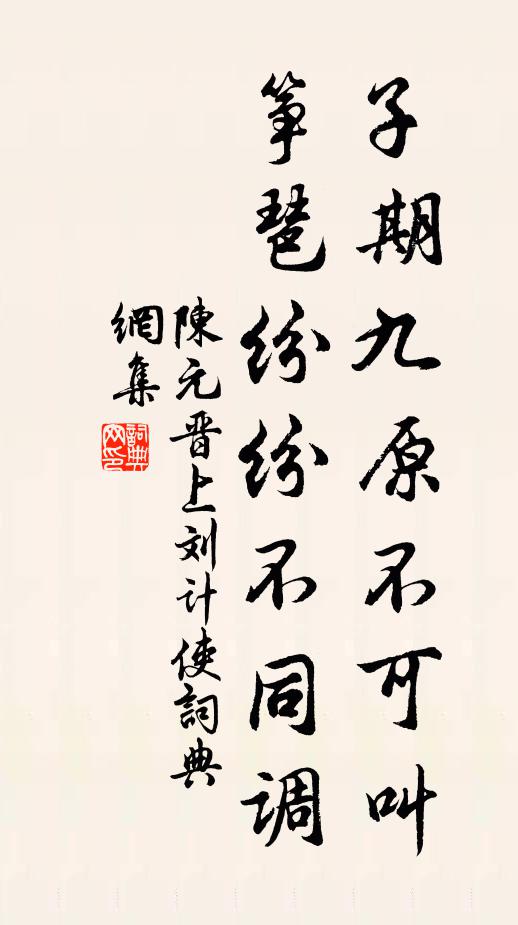 子期九原不可叫
筝琶纷纷不同调
陳元晋上刘计使詞典
網集
詞典
网印